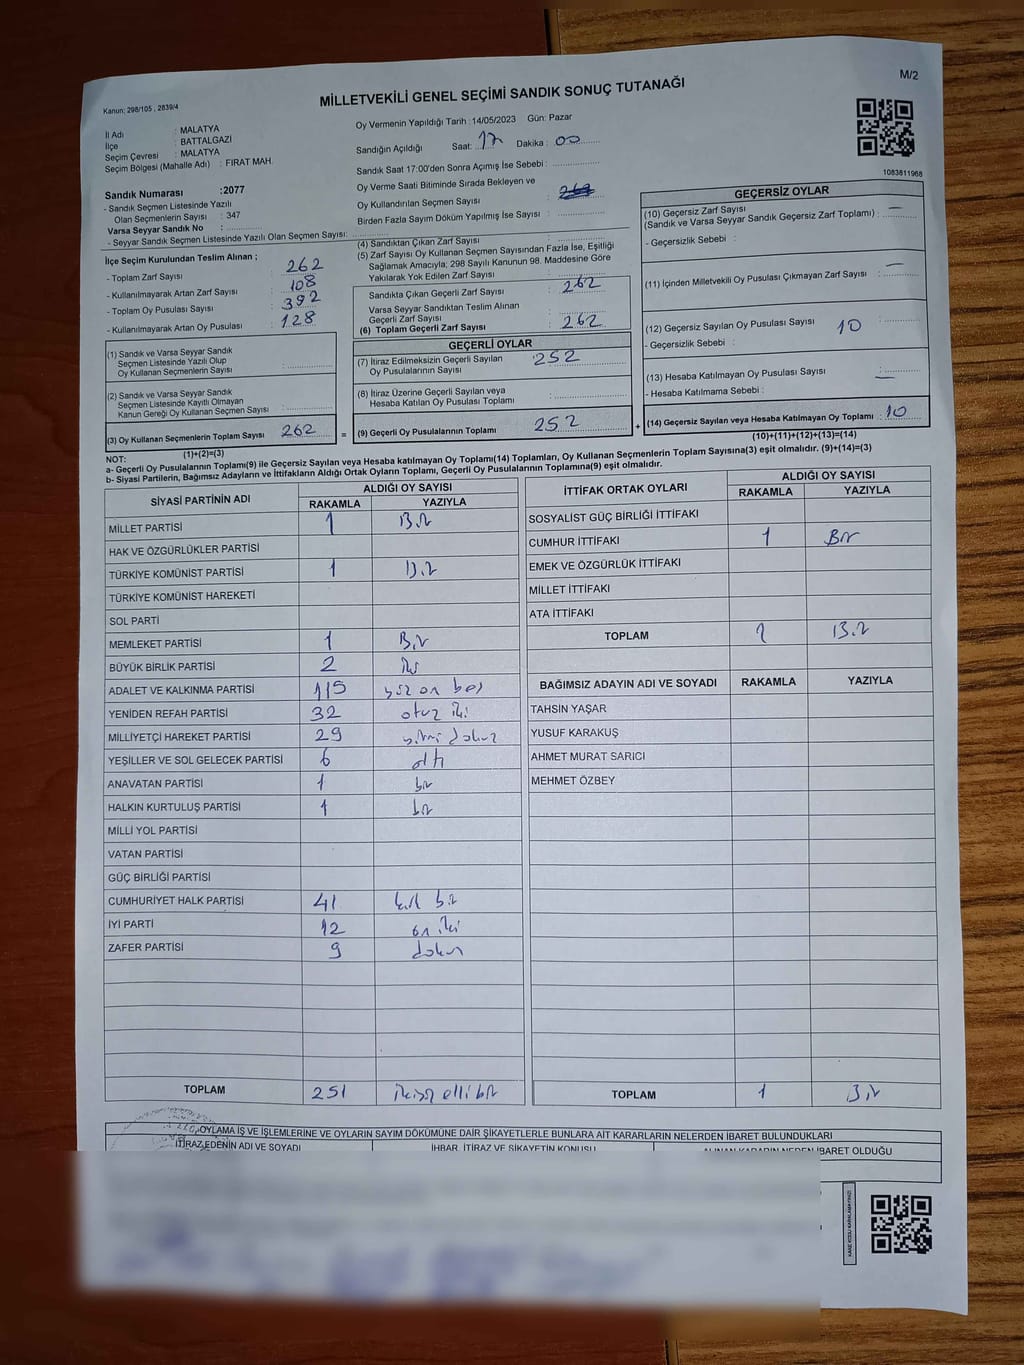 M/2
Kanun: 298/105 , 2839/4
MİLLETVEKİLİ GENEL SEÇİMİ SANDIK SONUÇ TUTANAĞI
İl Adı : MALATYA
İlçe : BATTALGAZİ
Seçim Çevresi : MALATYA
Seçim Bölgesi (Mahalle Adı) : FIRAT MAH.
Oy Vermenin Yapıldığı Tarih :14/05/2023 Gün: Pazar
Sandığın Açıldığı Saat: 17 Dakika : 00
Sandık Saat 17:00'den Sonra Açımış İse Sebebi :
Oy Verme Saati Bitiminde Sırada Bekleyen ve
Oy Kullandırılan Seçmen Sayısı :
Birden Fazla Sayım Döküm Yapılmış İse Sayısı :
1083811968
Sandık Numarası :2077
- Sandık Seçmen Listesinde Yazılı
Olan Seçmenlerin Sayısı : 347
Varsa Seyyar Sandık No :
- Seyyar Sandık Seçmen Listesinde Yazılı Olan Seçmen Sayısı:
İlçe Seçim Kurulundan Teslim Alınan ;
- Toplam Zarf Sayısı : 262
- Kullanılmayarak Artan Zarf Sayısı : 108
- Toplam Oy Pusulası Sayısı : 392
- Kullanılmayarak Artan Oy Pusulası : 128
(1) Sandık ve Varsa Seyyar Sandık
Seçmen Listesinde Yazılı Olup
Oy Kullanan Seçmenlerin Sayısı :
(2) Sandık ve Varsa Seyyar Sandık
Seçmen Listesinde Kayıtlı Olmayan
Kanun Gereği Oy Kullanan Seçmen Sayısı :
(3) Oy Kullanan Seçmenlerin Toplam Sayısı : 262
(1)+(2)=(3)
(4) Sandıktan Çıkan Zarf Sayısı :
(5) Zarf Sayısı Oy Kullanan Seçmen Sayısından Fazla İse, Eşitliği
Sağlamak Amacıyla; 298 Sayılı Kanunun 98. Maddesine Göre
Yakılarak Yok Edilen Zarf Sayısı :
Sandıkta Çıkan Geçerli Zarf Sayısı : 262
Varsa Seyyar Sandıktan Teslim Alınan
Geçerli Zarf Sayısı :
(6) Toplam Geçerli Zarf Sayısı : 262
GEÇERLİ OYLAR
(7) İtiraz Edilmeksizin Geçerli Sayılan
Oy Pusulalarının Sayısı : 252
(8) İtiraz Üzerine Geçerli Sayılan veya
Hesaba Katılan Oy Pusulası Toplamı :
= (9) Geçerli Oy Pusulalarının Toplamı : 252 +
GEÇERSİZ OYLAR
(10) Geçersiz Zarf Sayısı
(Sandık ve Varsa Seyyar Sandık Geçersiz Zarf Toplamı) : —
- Geçersizlik Sebebi :
(11) İçinden Milletvekili Oy Pusulası Çıkmayan Zarf Sayısı : —
(12) Geçersiz Sayılan Oy Pusulası Sayısı : 10
- Geçersizlik Sebebi :
(13) Hesaba Katılmayan Oy Pusulası Sayısı : —
- Hesaba Katılmama Sebebi :
(14) Geçersiz Sayılan veya Hesaba Katılmayan Oy Toplamı : 10
(10)+(11)+(12)+(13)=(14)
NOT:
a- Geçerli Oy Pusulalarının Toplamı(9) ile Geçersiz Sayılan veya Hesaba katılmayan Oy Toplamı(14) Toplamları, Oy Kullanan Seçmenlerin Toplam Sayısına(3) eşit olmalıdır. (9)+(14)=(3)
b- Siyasi Partilerin, Bağımsız Adayların ve İttifakların Aldığı Ortak Oyların Toplamı, Geçerli Oy Pusulalarının Toplamına(9) eşit olmalıdır.
SİYASİ PARTİNİN ADI ALDIĞI OY SAYISI
RAKAMLA YAZIYLA
MİLLET PARTİSİ 1 Bir
HAK VE ÖZGÜRLÜKLER PARTİSİ
TÜRKİYE KOMÜNİST PARTİSİ 1 Bir
TÜRKİYE KOMÜNİST HAREKETİ
SOL PARTİ
MEMLEKET PARTİSİ 1 Bir
BÜYÜK BİRLİK PARTİSİ 2 iki
ADALET VE KALKINMA PARTİSİ 115 yüz on beş
YENİDEN REFAH PARTİSİ 32 otuz iki
MİLLİYETÇİ HAREKET PARTİSİ 29 yirmi dokuz
YEŞİLLER VE SOL GELECEK PARTİSİ 6 altı
ANAVATAN PARTİSİ 1 bir
HALKIN KURTULUŞ PARTİSİ 1 bir
MİLLİ YOL PARTİSİ
VATAN PARTİSİ
GÜÇ BİRLİĞİ PARTİSİ
CUMHURİYET HALK PARTİSİ 41 kırk bir
İYİ PARTİ 12 on iki
ZAFER PARTİSİ 9 dokuz
TOPLAM 251 ikiyüz elli bir
İTTİFAK ORTAK OYLARI ALDIĞI OY SAYISI
RAKAMLA YAZIYLA
SOSYALİST GÜÇ BİRLİĞİ İTTİFAKI
CUMHUR İTTİFAKI 1 Bir
EMEK VE ÖZGÜRLÜK İTTİFAKI
MİLLET İTTİFAKI
ATA İTTİFAKI
TOPLAM 1 Bir
BAĞIMSIZ ADAYIN ADI VE SOYADI RAKAMLA YAZIYLA
TAHSİN YAŞAR
YUSUF KARAKUŞ
AHMET MURAT SARICI
MEHMET ÖZBEY
TOPLAM 1 Bir
OYLAMA İŞ VE İŞLEMLERİNE VE OYLARIN SAYIM DÖKÜMÜNE DAİR ŞİKAYETLERLE BUNLARA AİT KARARLARIN NELERDEN İBARET BULUNDUKLARI
İTİRAZ EDENİN ADI VE SOYADI İHBAR, İTİRAZ VE ŞİKAYETİN KONUSU ALINAN KARARIN NEDEN İBARET OLDUĞU